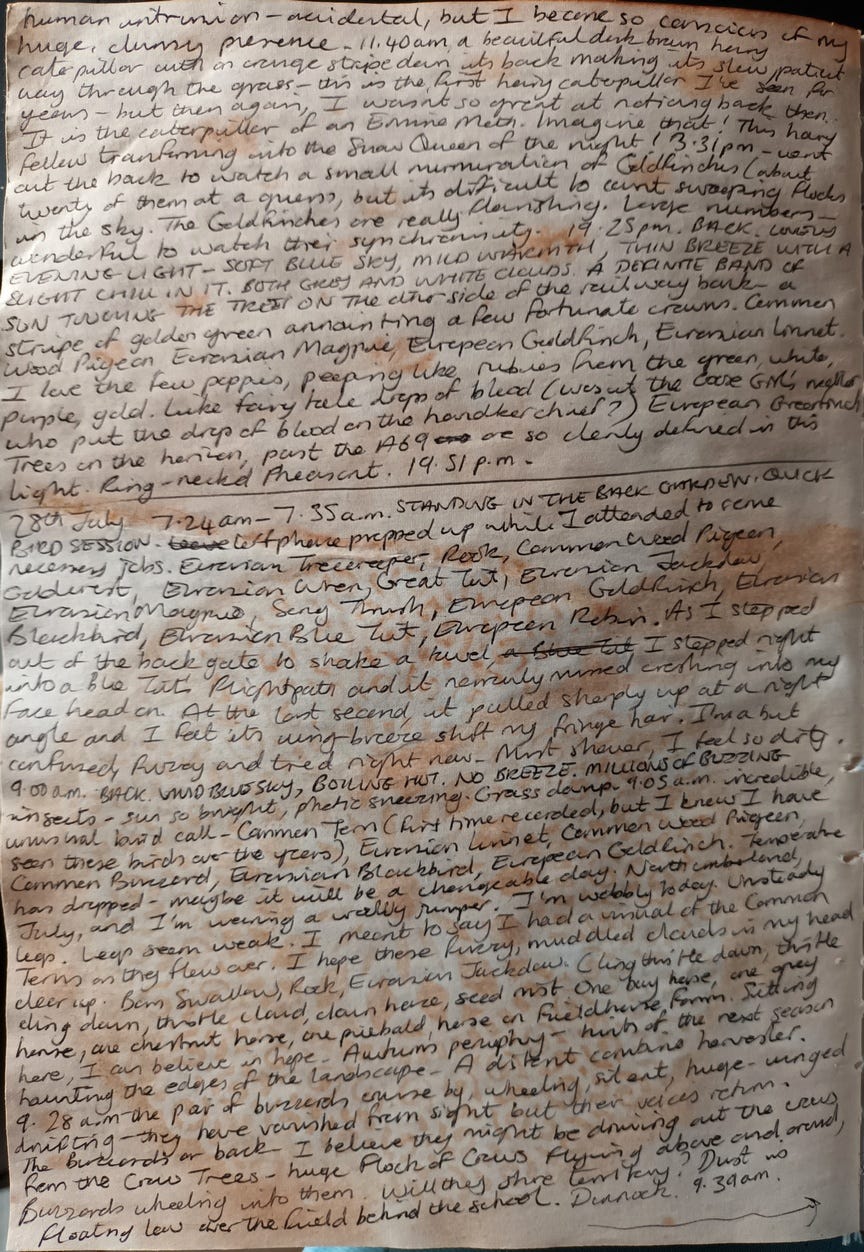 human intrusion - accidental, but I become so conscious of my
huge, clumsy presence. 11.40am a beautiful dark brown hairy
caterpillar with an orange stripe down its back making its slow, patient
way through the grass - this is the first hairy caterpillar I've seen for
years - but then again, I wasn't so great at noticing back then.
It is the caterpillar of an Ermine Moth. Imagine that! This hairy
fellow tranforming into the Snow Queen of the night! 3.31pm - went
out the back to watch a small murmuration of Goldfinches (about
twenty of them at a guess, but its difficult to count swooping flocks
in the sky. The Goldfinches are really flourishing. Large numbers -
wonderful to watch their synchronicity. 19.25pm. BACK. LOVELY
EVENING LIGHT - SOFT BLUE SKY, MILD WARMTH, THIN BREEZE WITH A
SLIGHT CHILL IN IT. BOTH GREY AND WHITE CLOUDS. A DEFINITE BAND OF
SUN TOUCHING THE TREES ON THE other side of the railway bank - a
stripe of golden green annointing a few fortunate crowns. Common
Wood Pigeon Eurasian Magpie, European Goldfinch, Eurasian Linnet.
I love the few poppies, peeping like rubies from the green, white,
purple, gold. Like fairy tale drops of blood (was it the Goose Girl's mother
who put the drop of blood on the handkerchief?) European Greenfinch
Trees on the horizon, past the A69 are so clearly defined in this
light. Ring-necked Pheasant. 19.51p.m.
28th July 7.24am - 7.35a.m. STANDING IN THE BACK GARDEN. QUICK
BIRD SESSION. Leave left phone propped up while I attended to some
necessary jobs. Eurasian Treecreeper, Rook, Common Wood Pigeon,
Goldcrest, Eurasian Wren, Great Tit, Eurasian Jackdaw,
Eurasian Magpie, Song Thrush, European Goldfinch, Eurasian
Blackbird, Eurasian Blue Tit, European Robin. As I stepped
out of the back gate to shake a towel, a Blue Tit I stepped right
into a Blue Tit's flightpath and it narrowly missed crashing into my
face head on. At the last second, it pulled sharply up at a right
angle and I felt its wing-breeze shift my fringe hair. I'm a bit
confused, fuzzy and tired right now. Must shower, I feel so dirty.
9.00am. BACK. VIVID BLUE SKY, BOILING HOT. NO BREEZE. MILLIONS OF BUZZING
insects - sun so bright, photic sneezing. Grass damp. 9.05a.m. incredible,
unusual bird call - Common Tern (first time recorded, but I know I have
seen these birds over the years), Eurasian Linnet, Common Wood Pigeon,
Common Buzzard, Eurasian Blackbird, European Goldfinch. Temperature
has dropped - maybe it will be a changeable day. Northumberland,
July, and I'm wearing a woolly jumper. I'm wobbly today. Unsteady
legs. Legs seem weak. I meant to say I had a visual of the Common
Terns as they flew over. I hope these fuzzy, muddled clouds in my head
clear up. Barn Swallow, Rook, Eurasian Jackdaw. Cling thistle down, thistle
cling down, thistle cloud, clown haze, seed mist One bay horse, one grey
horse, one chestnut horse, one piebald horse on Fieldhouse Farm. Sitting
here, I can believe in hope. Autumn periphery - hints of the next season
haunting the edges of the landscape - A distant combine harvester.
9.28a.m - the pair of buzzards course by, wheeling, silent, huge-winged
drifting - they have vanished from sight but their voices return.
The Buzzards are back. I believe they might be driving out the crows
from the Crow Trees - huge flock of Crows flying above and around,
Buzzards wheeling into them. Will they share territory? Dust is
floating low over the field behind the school. Dunnock. 9.39am.